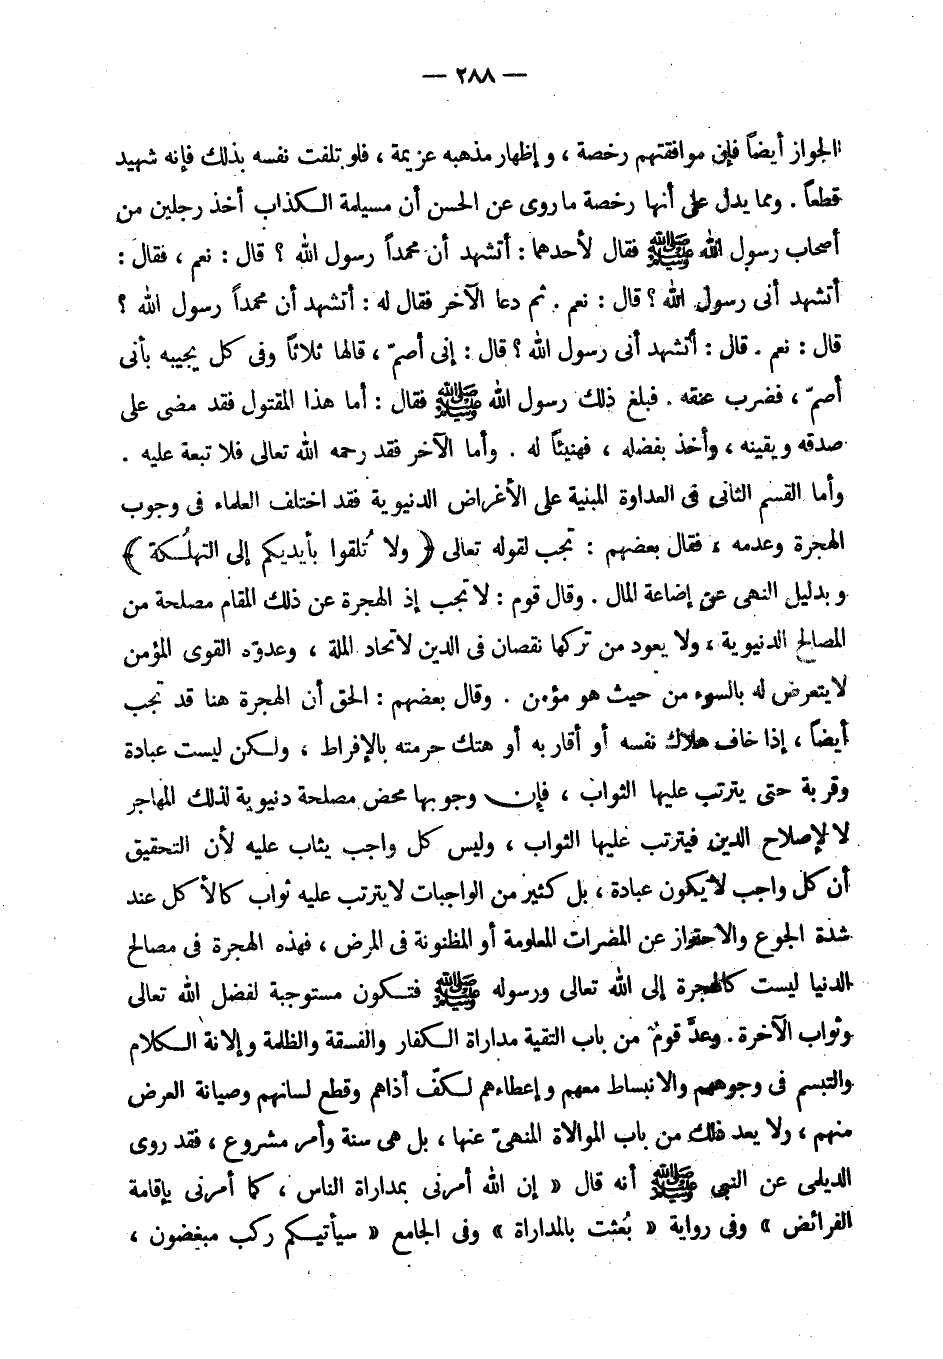 — ٢٨٨ —
الجواز أيضاً فإن موافقتهم رخصة ، وإظهار مذهبه عزيمة ، فلو تلفت نفسه بذلك فإنه شهيد
قطعاً . ومما يدل على أنها رخصة ما روى عن الحسن أن مسيلمة الكذاب أخذ رجلين من
أصحاب رسول الله ﷺ فقال لأحدهما : أتشهد أن محمداً رسول الله ؟ قال : نعم ، فقال :
أتشهد أنى رسول الله ؟ قال : نعم . ثم دعا الآخر فقال له : أتشهد أن محمداً رسول الله ؟
قال : نعم . قال : أتشهد أنى رسول الله ؟ قال : إنى أصمّ ، قالها ثلاثاً وفى كل يجيبه بأنى
أصمّ ، فضرب عنقه . فبلغ ذلك رسول الله ﷺ فقال : أما هذا المقتول فقد مضى على
صدقه ويقينه ، وأخذ بفضله ، فهنيئاً له . وأما الآخر فقد رحمه الله تعالى فلا تبعة عليه .
وأما القسم الثانى فى العداوة المبنية على الأغراض الدنيوية فقد اختلف العلماء فى وجوب
الهجرة وعدمه ، فقال بعضهم : تجب لقوله تعالى ﴿ ولا تُلقوا بأيديكم إلى التهلُكة ﴾
وبدليل النهى عن إضاعة المال . وقال قوم : لا تجب إذ الهجرة عن ذلك المقام مصلحة من
المصالح الدنيوية ، ولا يعود من تركها نقصان فى الدين لاتحاد الملة ، وعدوّه القوى المؤمن
لا يتعرض له بالسوء من حيث هو مؤمن . وقال بعضهم : الحق أن الهجرة هنا قد تجب
أيضاً ، إذا خاف هلاك نفسه أو أقاربه أو هتك حرمته بالإفراط ، ولكن ليست عبادة
وقربة حتى يترتب عليها الثواب ، فإن وجوبها محض مصلحة دنيوية لذلك المهاجر
لا لإصلاح الدين فيترتب عليها الثواب ، وليس كل واجب يثاب عليه لأن التحقيق
أن كل واجب لا يكون عبادة ، بل كثير من الواجبات لا يترتب عليه ثواب كالأكل عند
شدة الجوع والاحتراز عن المضرات المعلومة أو المظنونة فى المرض ، فهذه الهجرة فى مصالح
الدنيا ليست كالهجرة إلى الله تعالى ورسوله ﷺ فتكون مستوجبة لفضل الله تعالى
وثواب الآخرة . وعدَّ قومٌ من باب التقية مداراة الكفار والفسقة والظلمة وإلانة الكلام
والتبسم فى وجوههم والانبساط معهم وإعطاءهم لكفّ أذاهم وقطع لسانهم وصيانة العرض
منهم ، ولا يعد ذلك من باب الموالاة المنهىّ عنها ، بل هى سنة وأمر مشروع ، فقد روى
الديلمى عن النبى ﷺ أنه قال « إن الله أمرنى بمداراة الناس ، كما أمرنى بإقامة
الفرائض » وفى رواية « بُعثت بالمداراة » وفى الجامع « سيأتيكم ركب مبغضون ،